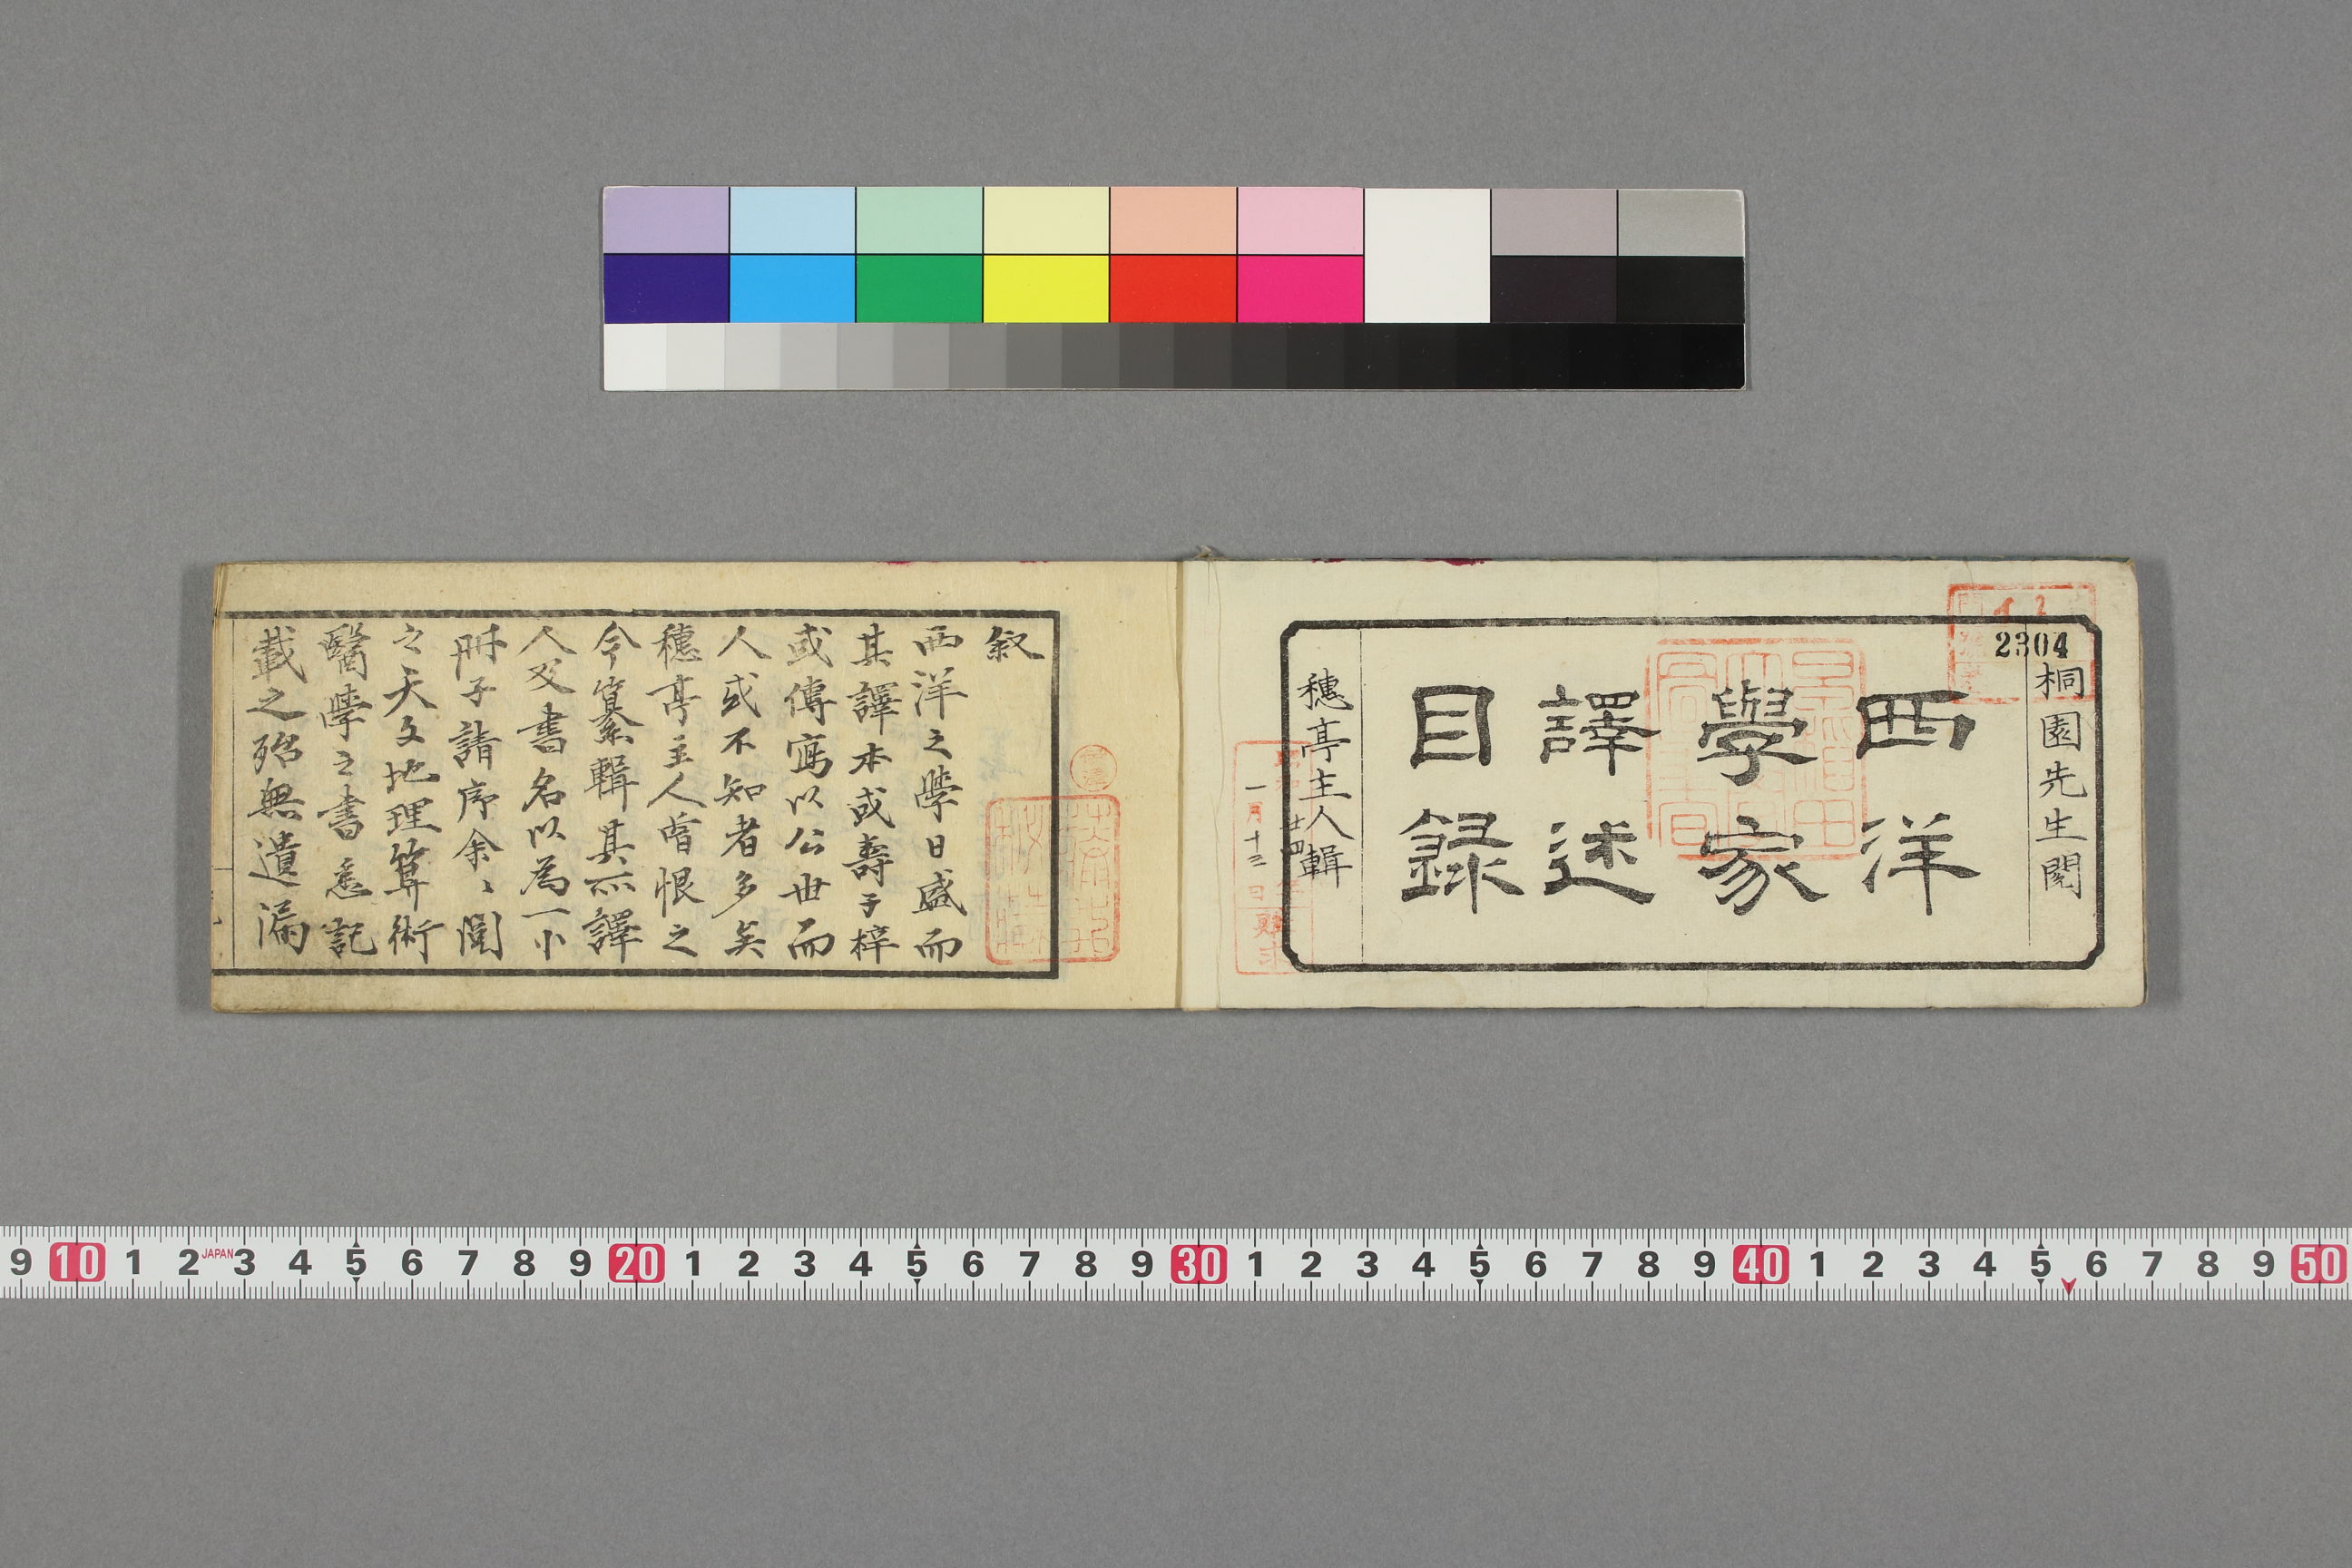 桐園先生閱
西洋
學家
譯述
目録
穗亭主人輯
2304
一月十三日
叙
西洋之學日盛而
其譯本或壽于梓
或傳寫以公世而
人或不知者多矣
穗亭主人嘗恨之
今纂輯其所譯
人及書名以為一小
冊子請序余〻閲
之天文地理算術
醫學之書悉記
載之殆無遺漏
9 10 1 2 JAPAN 3 4 5 6 7 8 9 20 1 2 3 4 5 6 7 8 9 30 1 2 3 4 5 6 7 8 9 40 1 2 3 4 5 6 7 8 9 50